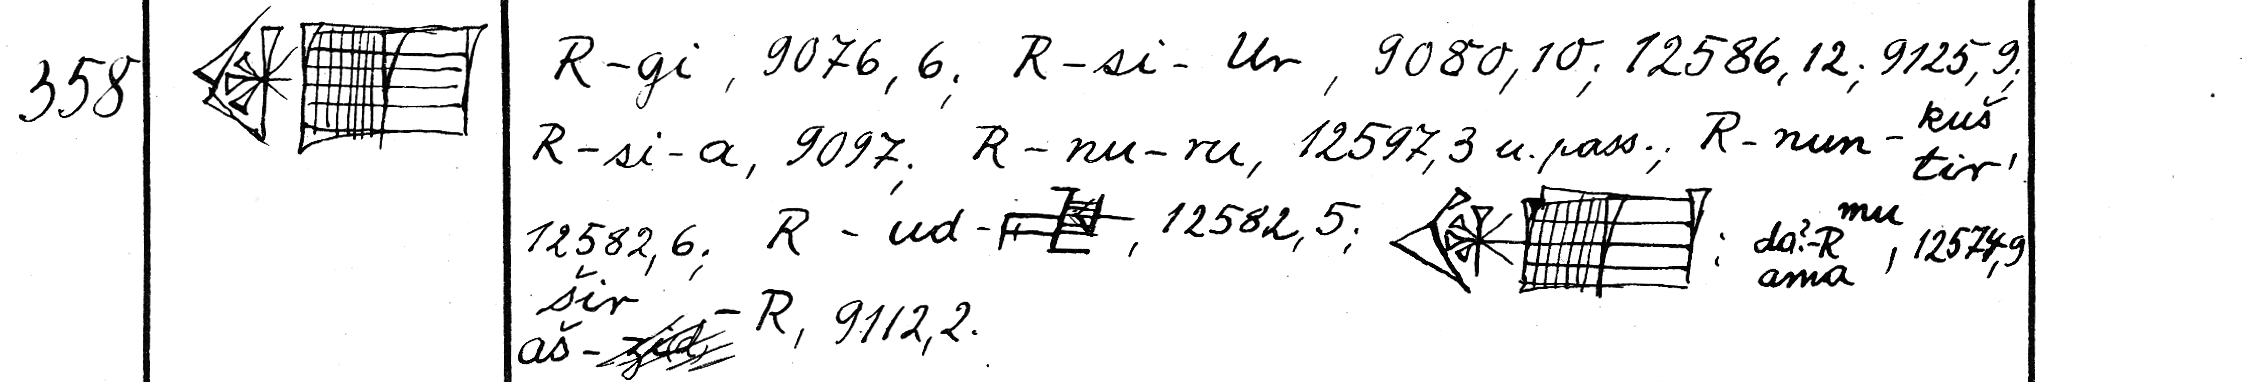 358 R-gi, 9076,6; R-si-Ur, 9080,10; 12586,12; 9125,9;
R-si-a, 9097; R-nu-ru, 12597,3 u. pass.; R-nun-kuš tir,
12582,6; R-ud- , 12582,5; : da?-R mu ama, 12574,9
šir aš- -R, 9112,2.